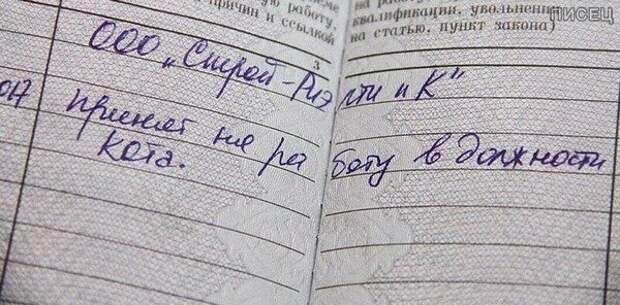 работу,
причин и ссылкой
квалификации, увольнении
на статью, пункт закона)
ПИСЕЦ
3
ООО „Строй-Риэлти и К"
017 принят на работу в должности
кота.